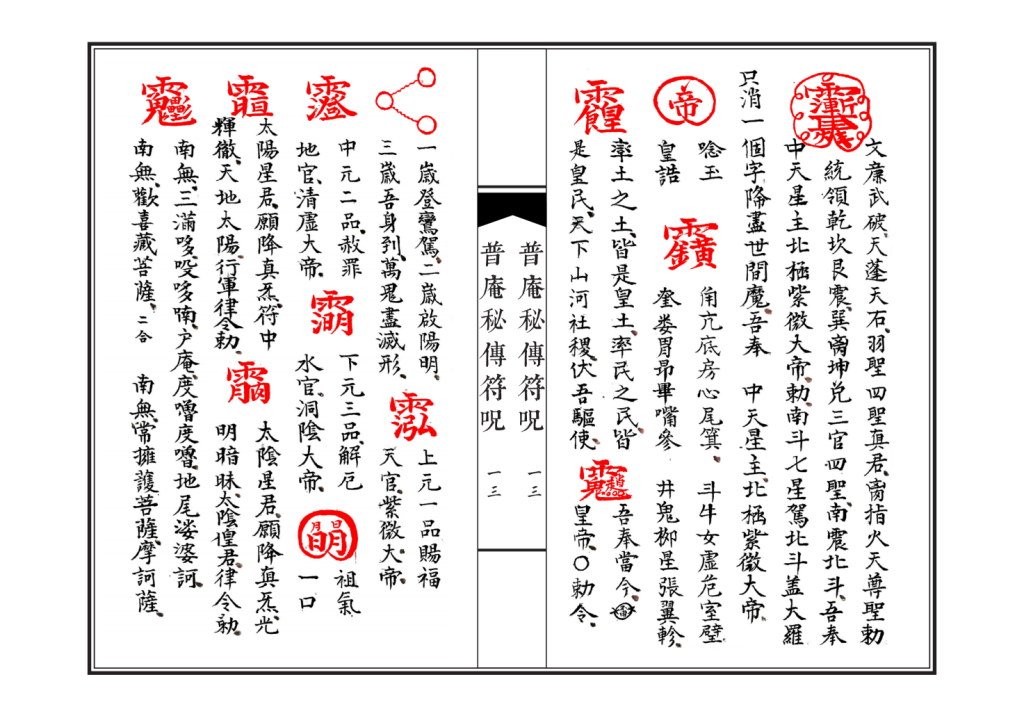 文廉武破天蓬天石、羽聖四聖真君、奝指火天尊聖勅
統領乾坎艮震、巽离坤兌三官四聖、南震北斗、吾奉
中天星主北極紫微大帝、勅南斗七星駕北斗盖大羅
只消一個字降盡世間魔、吾奉 中天星主、北極紫微大帝、
唸玉 角亢底房心尾箕、斗牛女虛危室壁
帝
皇誥 奎娄胃昴畢嘴參 井鬼柳星張翼軫、
率土之土、皆是皇土、率民之民、皆 吾奉當今、
是皇民、天下山河社稷、伏吾驅使、皇帝、〇勅令、
普庵秘傳符呪 一三
普庵秘傳符呪 一三
一歲登鸞駕、二歲啟陽明、 上元一品賜福
三歲吾身到、萬鬼盡滅形、 天官紫微大帝、
中元二品、赦罪 下元三品、解厄 祖氣
地官、清虛大帝、 水官、洞陰大帝、 一口
太陽星君、願降真炁、符中 太陰星君、願降真炁、光
輝徹、天地太陽、行軍律令勅、 明暗昧、太陰皇君、律令勅、
南無、三滿哆、哎哆喃、户庵、度嚕度嚕、地尾娑婆訶、
南無、歡喜藏菩薩、二合 南無、常擁護菩薩、摩訶薩、